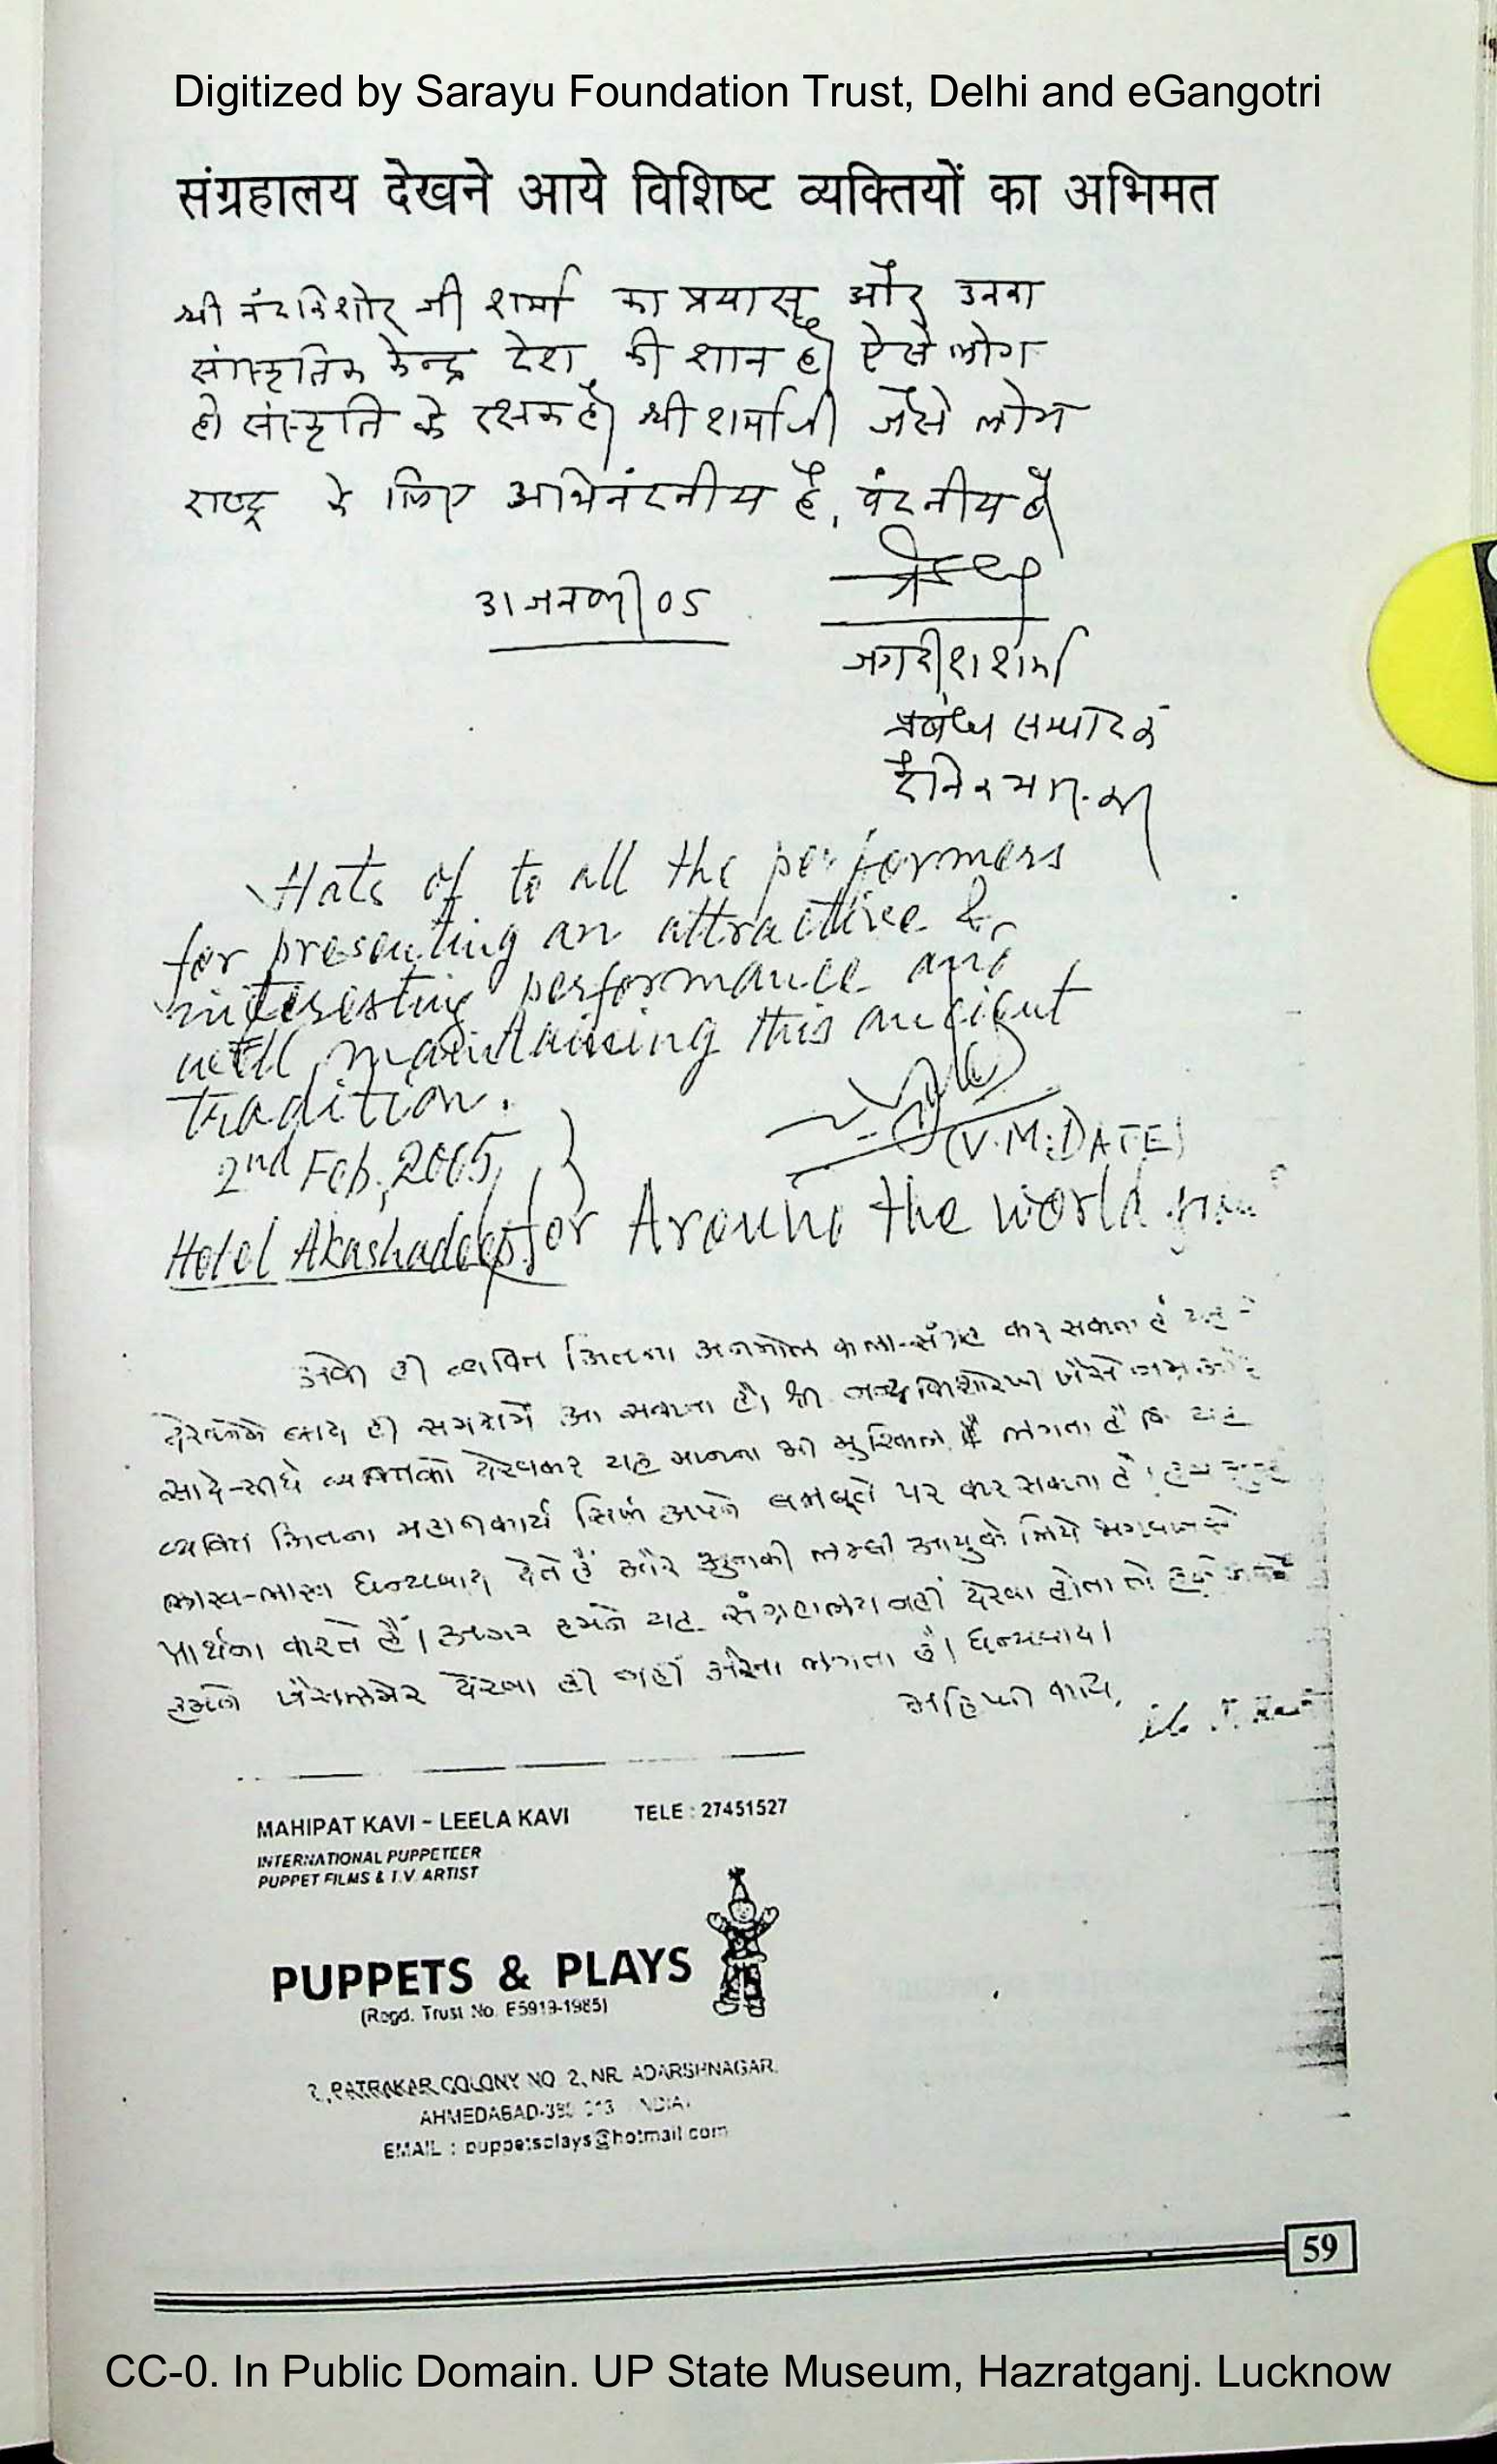 Digitized by Sarayu Foundation Trust, Delhi and eGangotri
संग्रहालय देखने आये विशिष्ट व्यक्तियों का अभिमत
श्री नंदकिशोर जी शर्मा का प्रयास और उनका
सांस्कृतिक केन्द्र देश की शान है। ऐसे लोग
ही संस्कृति के रक्षक है। श्री शर्मा जी जैसे लोग
राष्ट्र के लिए अभिनंदनीय है, वंदनीय है।
31 जनवरी 05
जगदीश शर्मा
प्रबंध सम्पादक
दैनिक
Hats of to all the performers
for presenting an attractive &
interesting performance and
well maintaining this ancient
tradition.
(V.M. DATE)
2nd Feb, 2005
Hotel Akashadeep for Around the world
ही व्यक्ति इतना अनमोल कला-संग्रह कर सकता है
देखनेके बाद ही समझमें आ सकता है। श्री नन्दकिशोरजी जैसे
सादे-सीधे व्यक्तिको देखकर यह मानना भी मुश्किल है लगता है कि यह
व्यक्ति इतना महानकार्य सिर्फ अपने बलबूते पर कर सकता है। हम
लाख-लाख धन्यवाद देते हैं और इनकी लम्बी आयुके लिये भगवानसे
प्रार्थना करते हैं। अगर हमने यह संग्रहालय नहीं देखा होता तो
हमने जैसलमेर देखा ही नहीं ऐसा लगता है। धन्यवाद।
महिपत कवि,
MAHIPAT KAVI - LEELA KAVI TELE : 27451527
INTERNATIONAL PUPPETEER
PUPPET FILMS & T.V. ARTIST
PUPPETS & PLAYS
(Regd. Trust No. E5919-1985)
2, PATRAKAR COLONY NO. 2, NR. ADARSHNAGAR,
AHMEDABAD
EMAIL : puppetsplays@hotmail.com
59
CC-0. In Public Domain. UP State Museum, Hazratganj. Lucknow